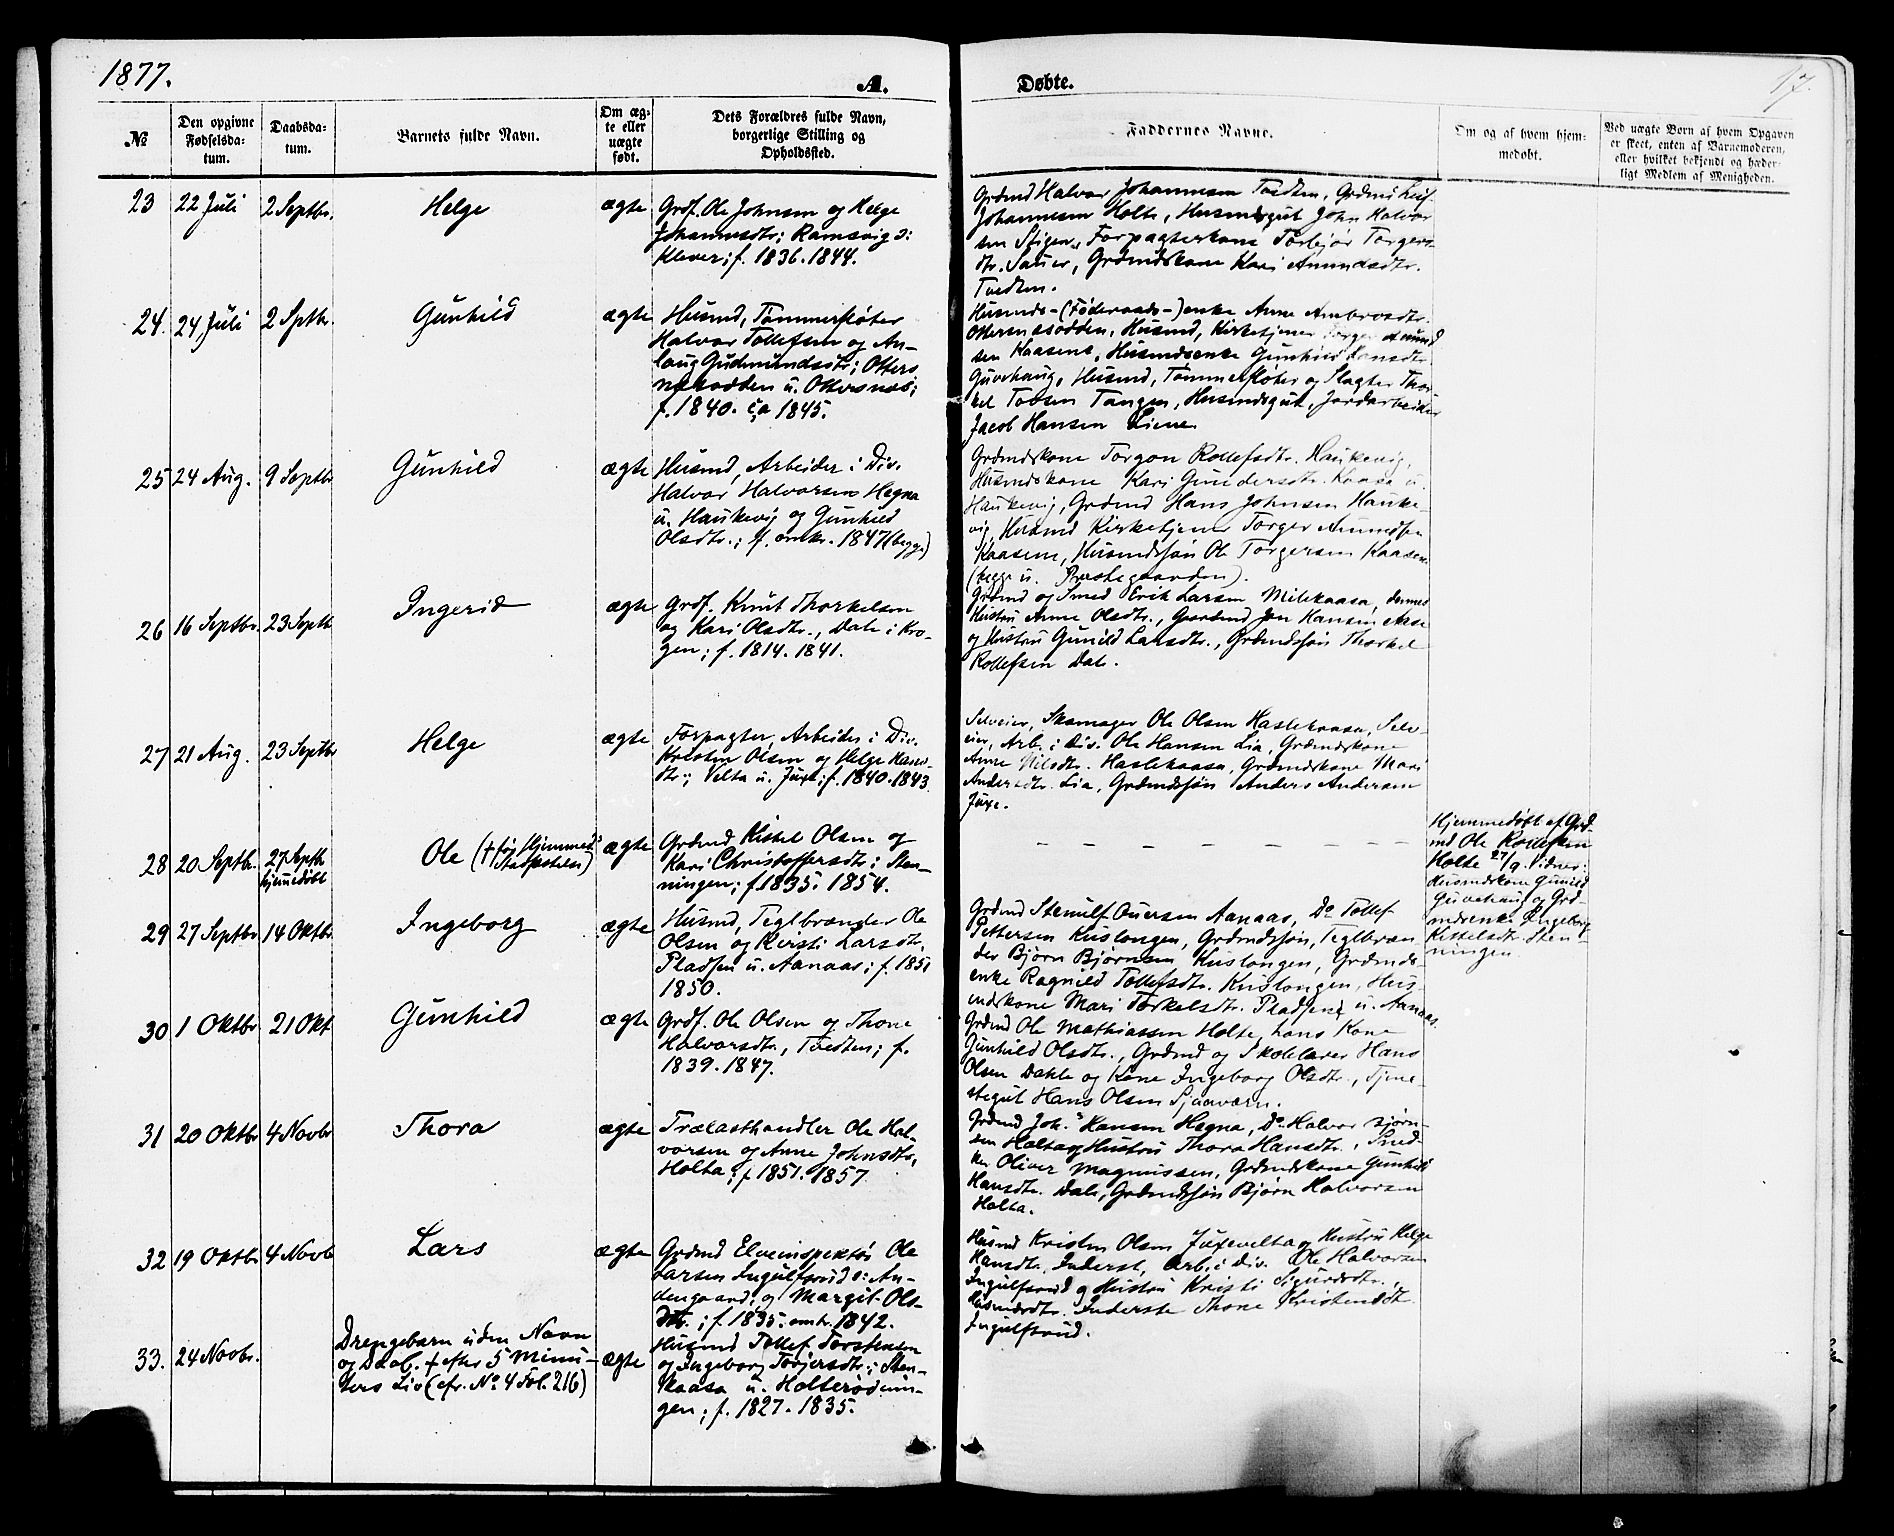 1877.
A.
Døbte.
17.
№
Den opgivne
Fødselsda-
tum.
Daabsda-
tum.
Barnets fulde Navn.
Om æg-
te eller
uægte
født.
Dets Forældres fulde Navn,
borgerlige Stilling og
Opholdssted.
Faddernes Navne.
Om og af hvem hjem-
medøbt.
Ved uægte Børn af hvem Opgaven
er skeet, enten af Barnemoderen,
eller hvilket bekjendt og hæder-
ligt Medlem af Menigheden.
23
22 Juli
2 Septbr.
Helge
ægte
Grdf. Ole Johnsen og Helge
Johannesdtr: Ramsvig o:
Klever; f. 1836. 1844.
Grdmd Halvor Johannesen Tvedten, Grdmd Leif
Johannesen Holte, Husmdsgut John Halvor
sen Stigen, Forpagterkone Torbjør Torgers-
dtr. Sauer, Grdmdskone Kari Amundsdtr.
Tvedten.
24.
24 Juli
2 Sptbr.
Gunhild
ægte
Husmd, Tømmerfløter
Halvor Tollefsen og An-
laug Gudmundsdtr; Otters
næsodden u. Ottersnæs;
f. 1840. ca 1845.
Husmds-(Føderaads-)enke Anne Ambrosdtr.
Ottersnæsodden, Husmd, Kirketjener Torger Amund
sen Kaasene, Husmdsenke Gunhild Hansdtr
Guvehaug, Husmd, Tømmerfløter og Slagter Thor
kel Tovsen Tangen, Husmdsgut, Jordarbeider
Jacob Hansen Liene
25
24 Aug.
9 Septbr
Gunhild
ægte
Husmd, Arbeider i Div.
Halvor Halvorsen Hegna
u. Haukevig og Gunhild
Olsdtr.; f. omkr. 1847 (begge)
Grdmdskone Torgon Rollefsdtr. Haukevig,
Husmdskone Kari Gundersdtr. Kaasa u.
Haukevig, Grdmd Hans Johnsen Hauke-
vig, Husmd Kirketjener Torger Amundsen
Kaasene, Husmdssøn Ole Torgersen Kaasene
(begge u. Prestegaarden).
26
16 Septbr.
23 Septb
Ingerid
ægte
Grdf. Knut Thorkelsen
og Kari Olsdtr., Dale i Kro-
gen; f. 1814. 1841.
Grdmd og Smed Erik Larsen Milekaasa, dennes
Hustru Anne Olsdtr., Gaardmd Jon Hansen Aase
og Hustru Gunild Larsdtr., Grdmdssøn Thorkel
Rollefsen Dale.
27
21 Aug.
23 Septbr
Helge
ægte
Forpagter, Arbeider i Div.
Kristen Olsen og Helge Hans-
dtr; Velta u. Juxe; f. 1840. 1843.
Selveier, Skomager Ole Olsen Haslekaasa, Selv-
eier, Arb. i Div. Ole Hansen Lia, Grdmdskone
Anne Nilsdtr. Haslekaasa, Grdmdskone Mari
Andersdtr. Lia, Grdmdssøn Anders Andersen
Juxe.
28
20 Septb.
27 Septb
hjemmedøbt
Ole († før Hjemmed.
Stadfæstelse)
ægte
Grdmd Kittel Olsen og
Kari Christoffersdtr: Sten-
ningen; f. 1835. 1854.
– – – – – – –
Hjemmedøbt af Grd-
md Ole Rollefsen
Holte 27/9. Vidner:
Husmdskone Gunild
Guvehaug og Grd-
mdsenke Ingeborg
Kittelsdtr. Sten-
ningen.
29
27 Septbr
14 Oktbr
Ingeborg
ægte
Husmd, Teglbrænder Ole
Olsen og Kirsti Larsdtr.
Pladsen u. Aanaas; f. 1851
1850.
Grdmd Stenulf Auersen Aanaas, Do Tollef
Pettersen Kuslongen, Grdmdssøn, Teglbræn
der Bjørn Bjørnsen Kuslongen, Grdmds-
enke Ragnild Tollefsdtr. Kuslongen, Hus-
mdskone Mari Torkelsdtr. Pladsene u. Aanaas.
30
1 Oktbr
21 Okt.
Gunhild
ægte
Grdf. Ole Olsen og Thone
Halvorsdtr., Tvedten; f.
1839. 1847.
Grdmd Ole Mathiassen Holte, hans Kone
Gunhild Olsdtr., Grdmd og Skolelærer Hans
Olsen Dahle og Kone Ingeborg Olsdtr., Tjene-
stegut Hans Olsen Sjaaværn.
31
20 Oktbr
4 Novbr
Thora
ægte
Trælasthandler Ole Hal-
vorsen og Anne Johnsdtr,
Holta; f. 1851. 1857
Grdmd Joh.s Hansen Hegna, Do Halvor Bjørn-
sen Holta og Hustru Thora Hansdtr., Sned-
ker Oliver Magnussen, Grdmdskone Gunhild
Hansdtr. Dale, Grdmdssøn Bjørn Halvorsen
Holta.
32
19 Oktbr
4 Novb
Lars
ægte
Grdmd Elveinspektør Ole
Larsen Ingulfsrud o: An-
dengaard; og Margit Ols-
dtr.; f. 1835. omkr. 1842.
Husmd Kristen Olsen Juxevelta og Hustru Helge
Hansdtr, Inderst, Arb. i Div. Ole Halvorsen
Ingulfsrud og Hustru Kristi Sigurdsdtr.,
Inderste Thone Kristensdtr.
Ingulfsrud.
33.
24 Novbr.
Drengebarn uden Navn
og Daab. † efter 5 Minu-
ters Liv (cfr. No 4 Fol. 216)
ægte
Husmd Tollef Torstensen
og Ingeborg Torjersdtr; Sten-
kaasa u. Holterødnin-
gen; f. 1827. 1835.